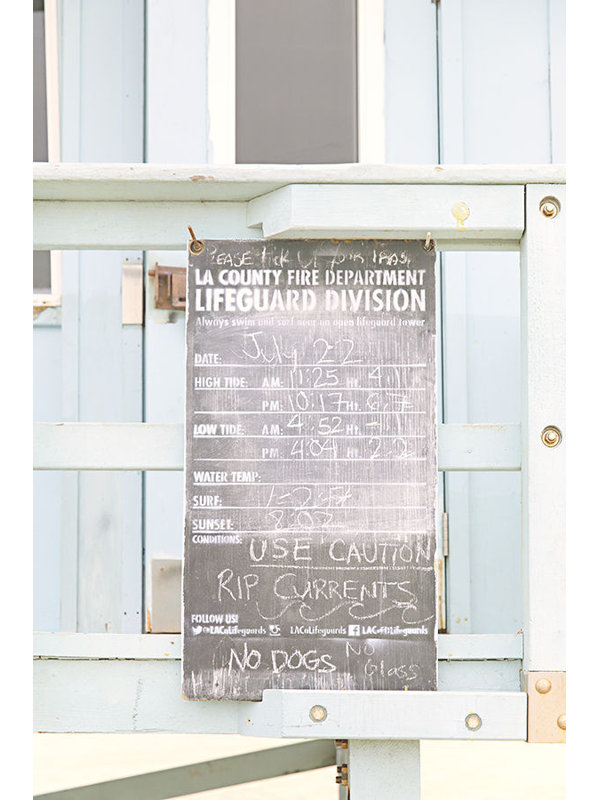 UP YOUR
LA COUNTY FIRE DEPARTMENT
LIFEGUARD DIVISION
Always swim and surf near an open lifeguard tower
DATE: July 22
HIGH TIDE: A.M: 11:25 Ht.
P.M: 10:17 Ht. 6.7
LOW TIDE: A.M: 4:52 Ht.
P.M: 4:04 Ht. 2.2
WATER TEMP:
SURF: 1-2 ft
SUNSET: 8:02
CONDITIONS:
USE CAUTION
RIP CURRENTS
FOLLOW US!
@LACoLifeguards LACoLifeguards LACoFDLifeguards
NO DOGS NO
Glass